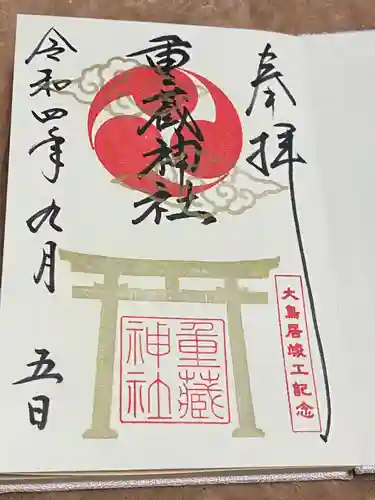 奉拝
重蔵神社
令和四年九月五日
大鳥居竣工記念
重藏
神社